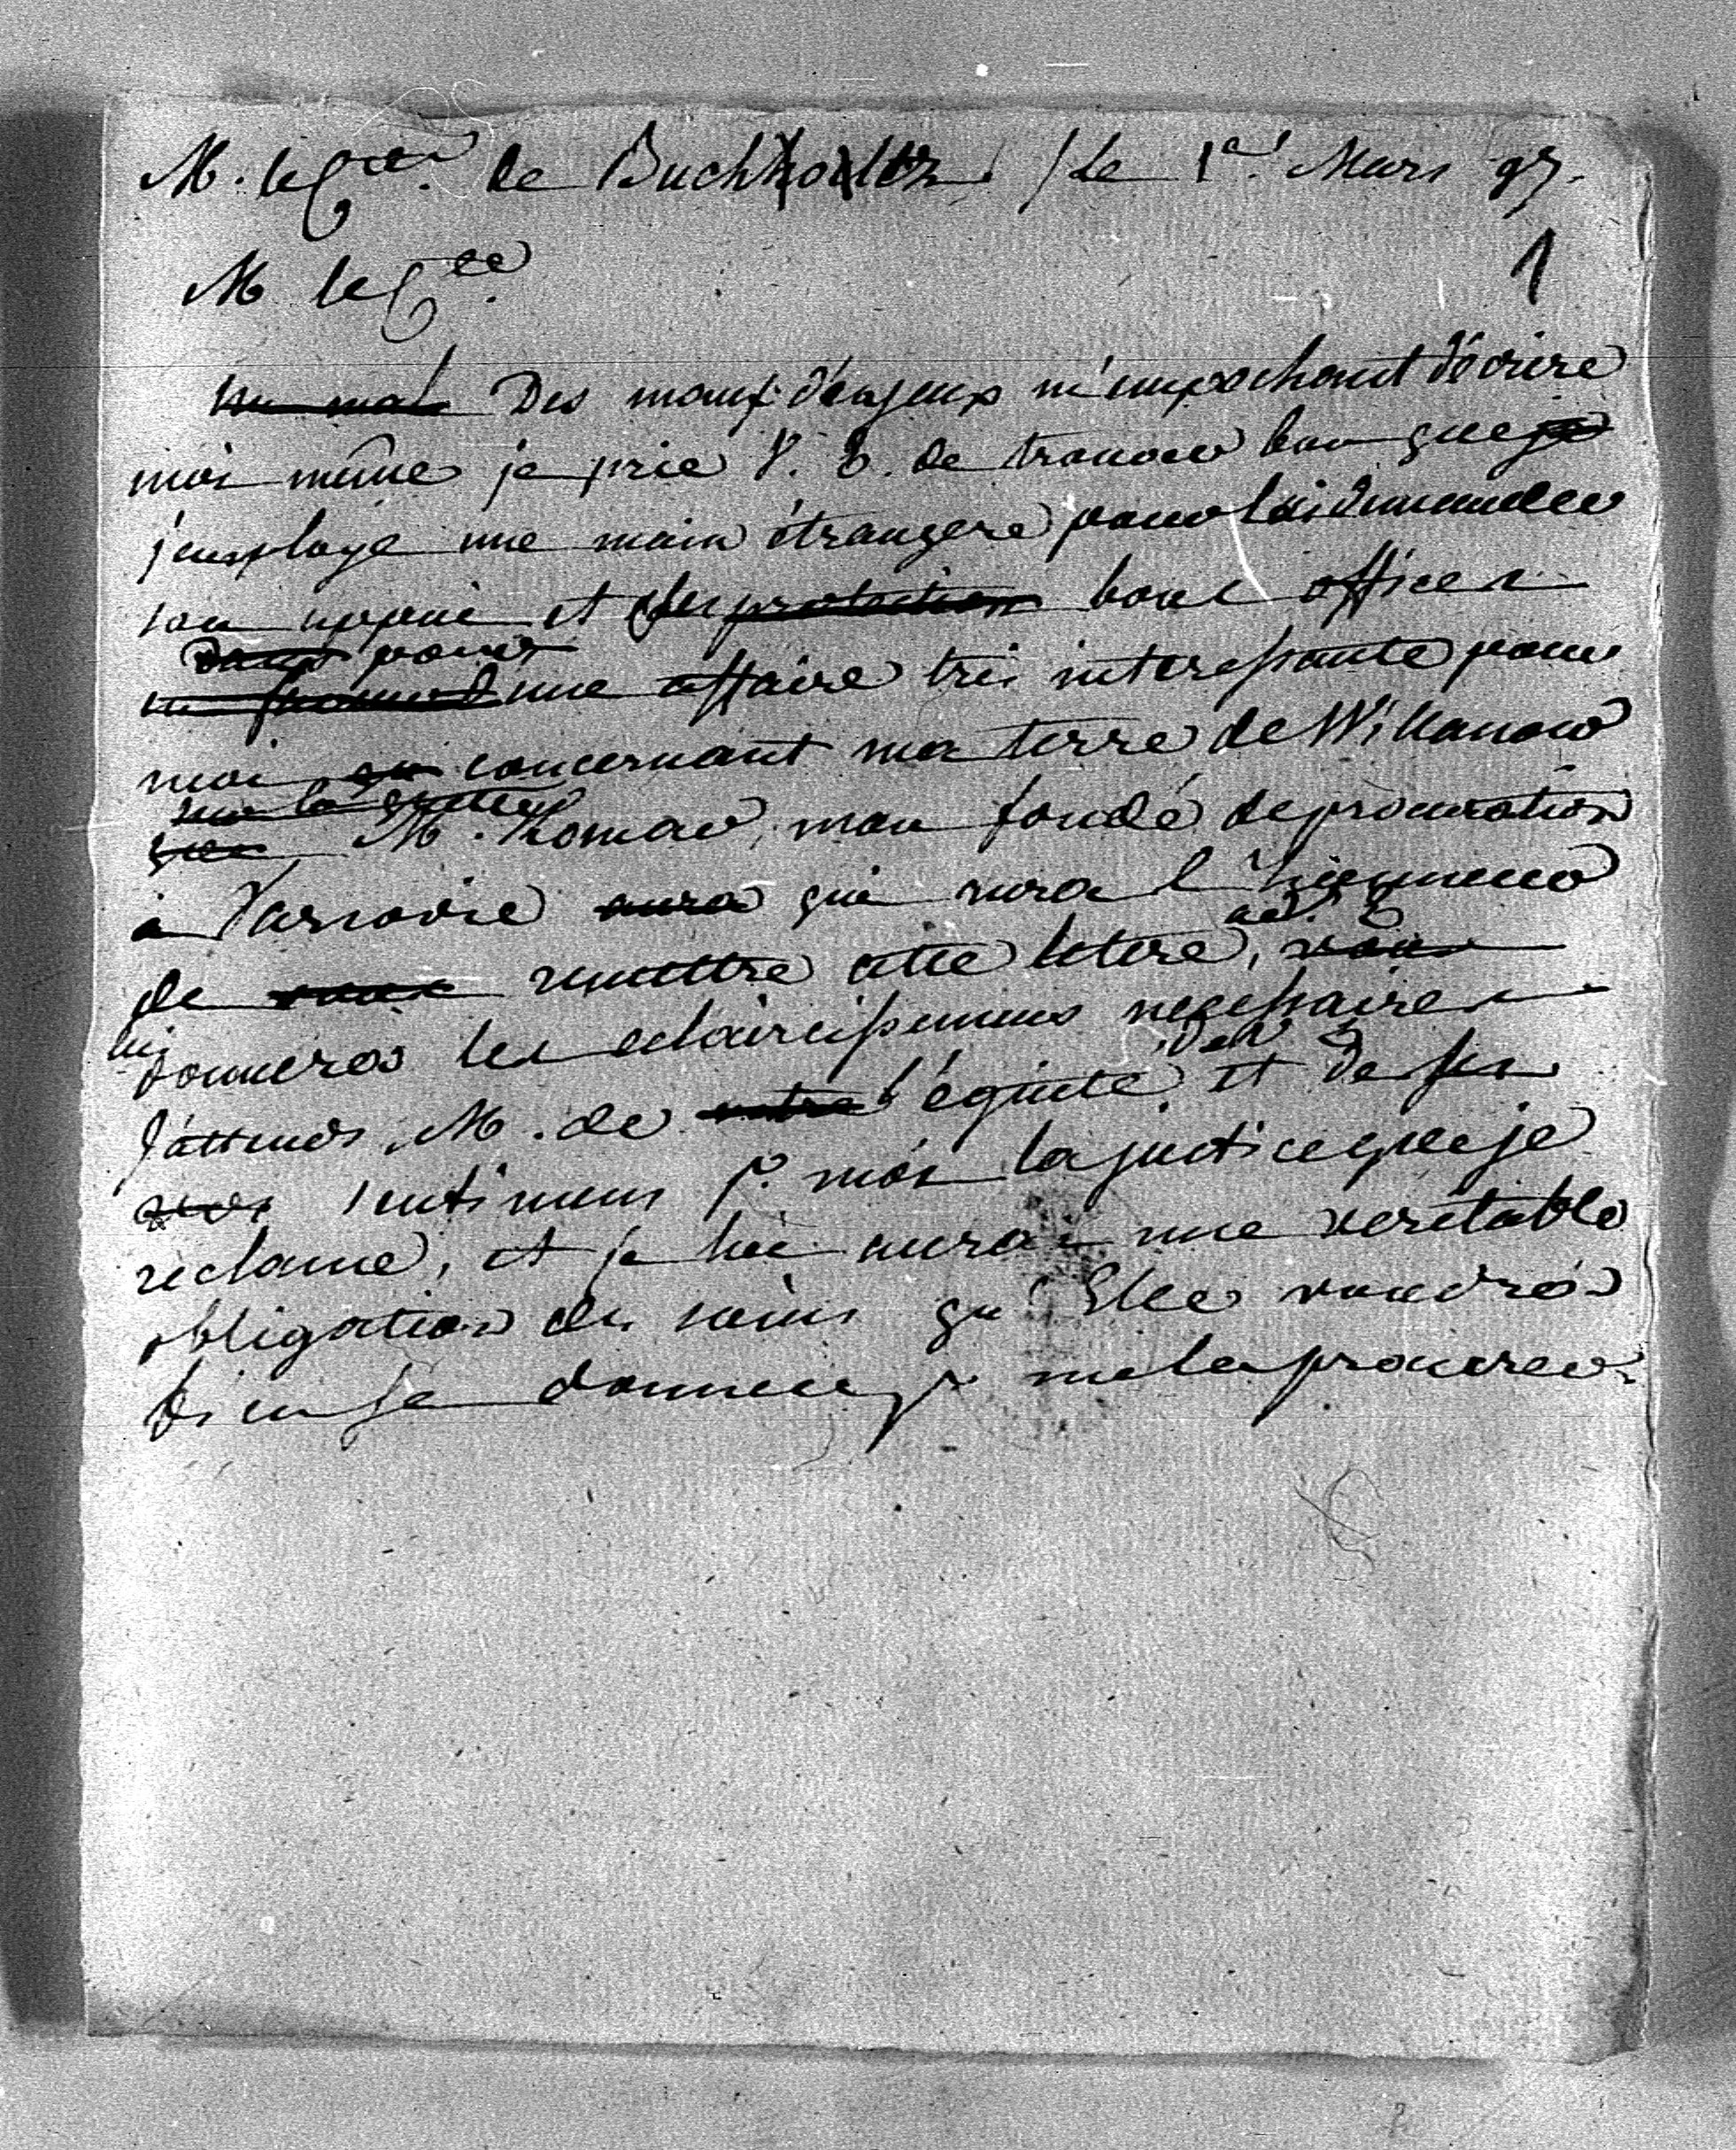 M. le Cte. de Buchholtz / Le 1er. Mars 95.
1
M le Cte.
un mal Des maux d'yeux m'empechant d'écrire
moi même je prie V. E. de trouver bon que je
j'employe une main étrangere pour lui demander
son appui et ses protection bons offices
dans pour
une affaire très interessante pour
moi en concernant ma terre de Willanow
sur laquelle
que M. Roman, mon fondé de procuration
à Varsovie aura qui aura l'honneur
de vous remettre cette lettre, vous
à V. E.
lui donnera les eclaircissemens necessaires
J'attends, M. de votre l'équité et de ses
de V. E.
vos sentimens p. moi la justice que je
reclame, et je lui aurai une veritable
obligation des soins qu'Elle voudra
bien se donner p. me la procurer.